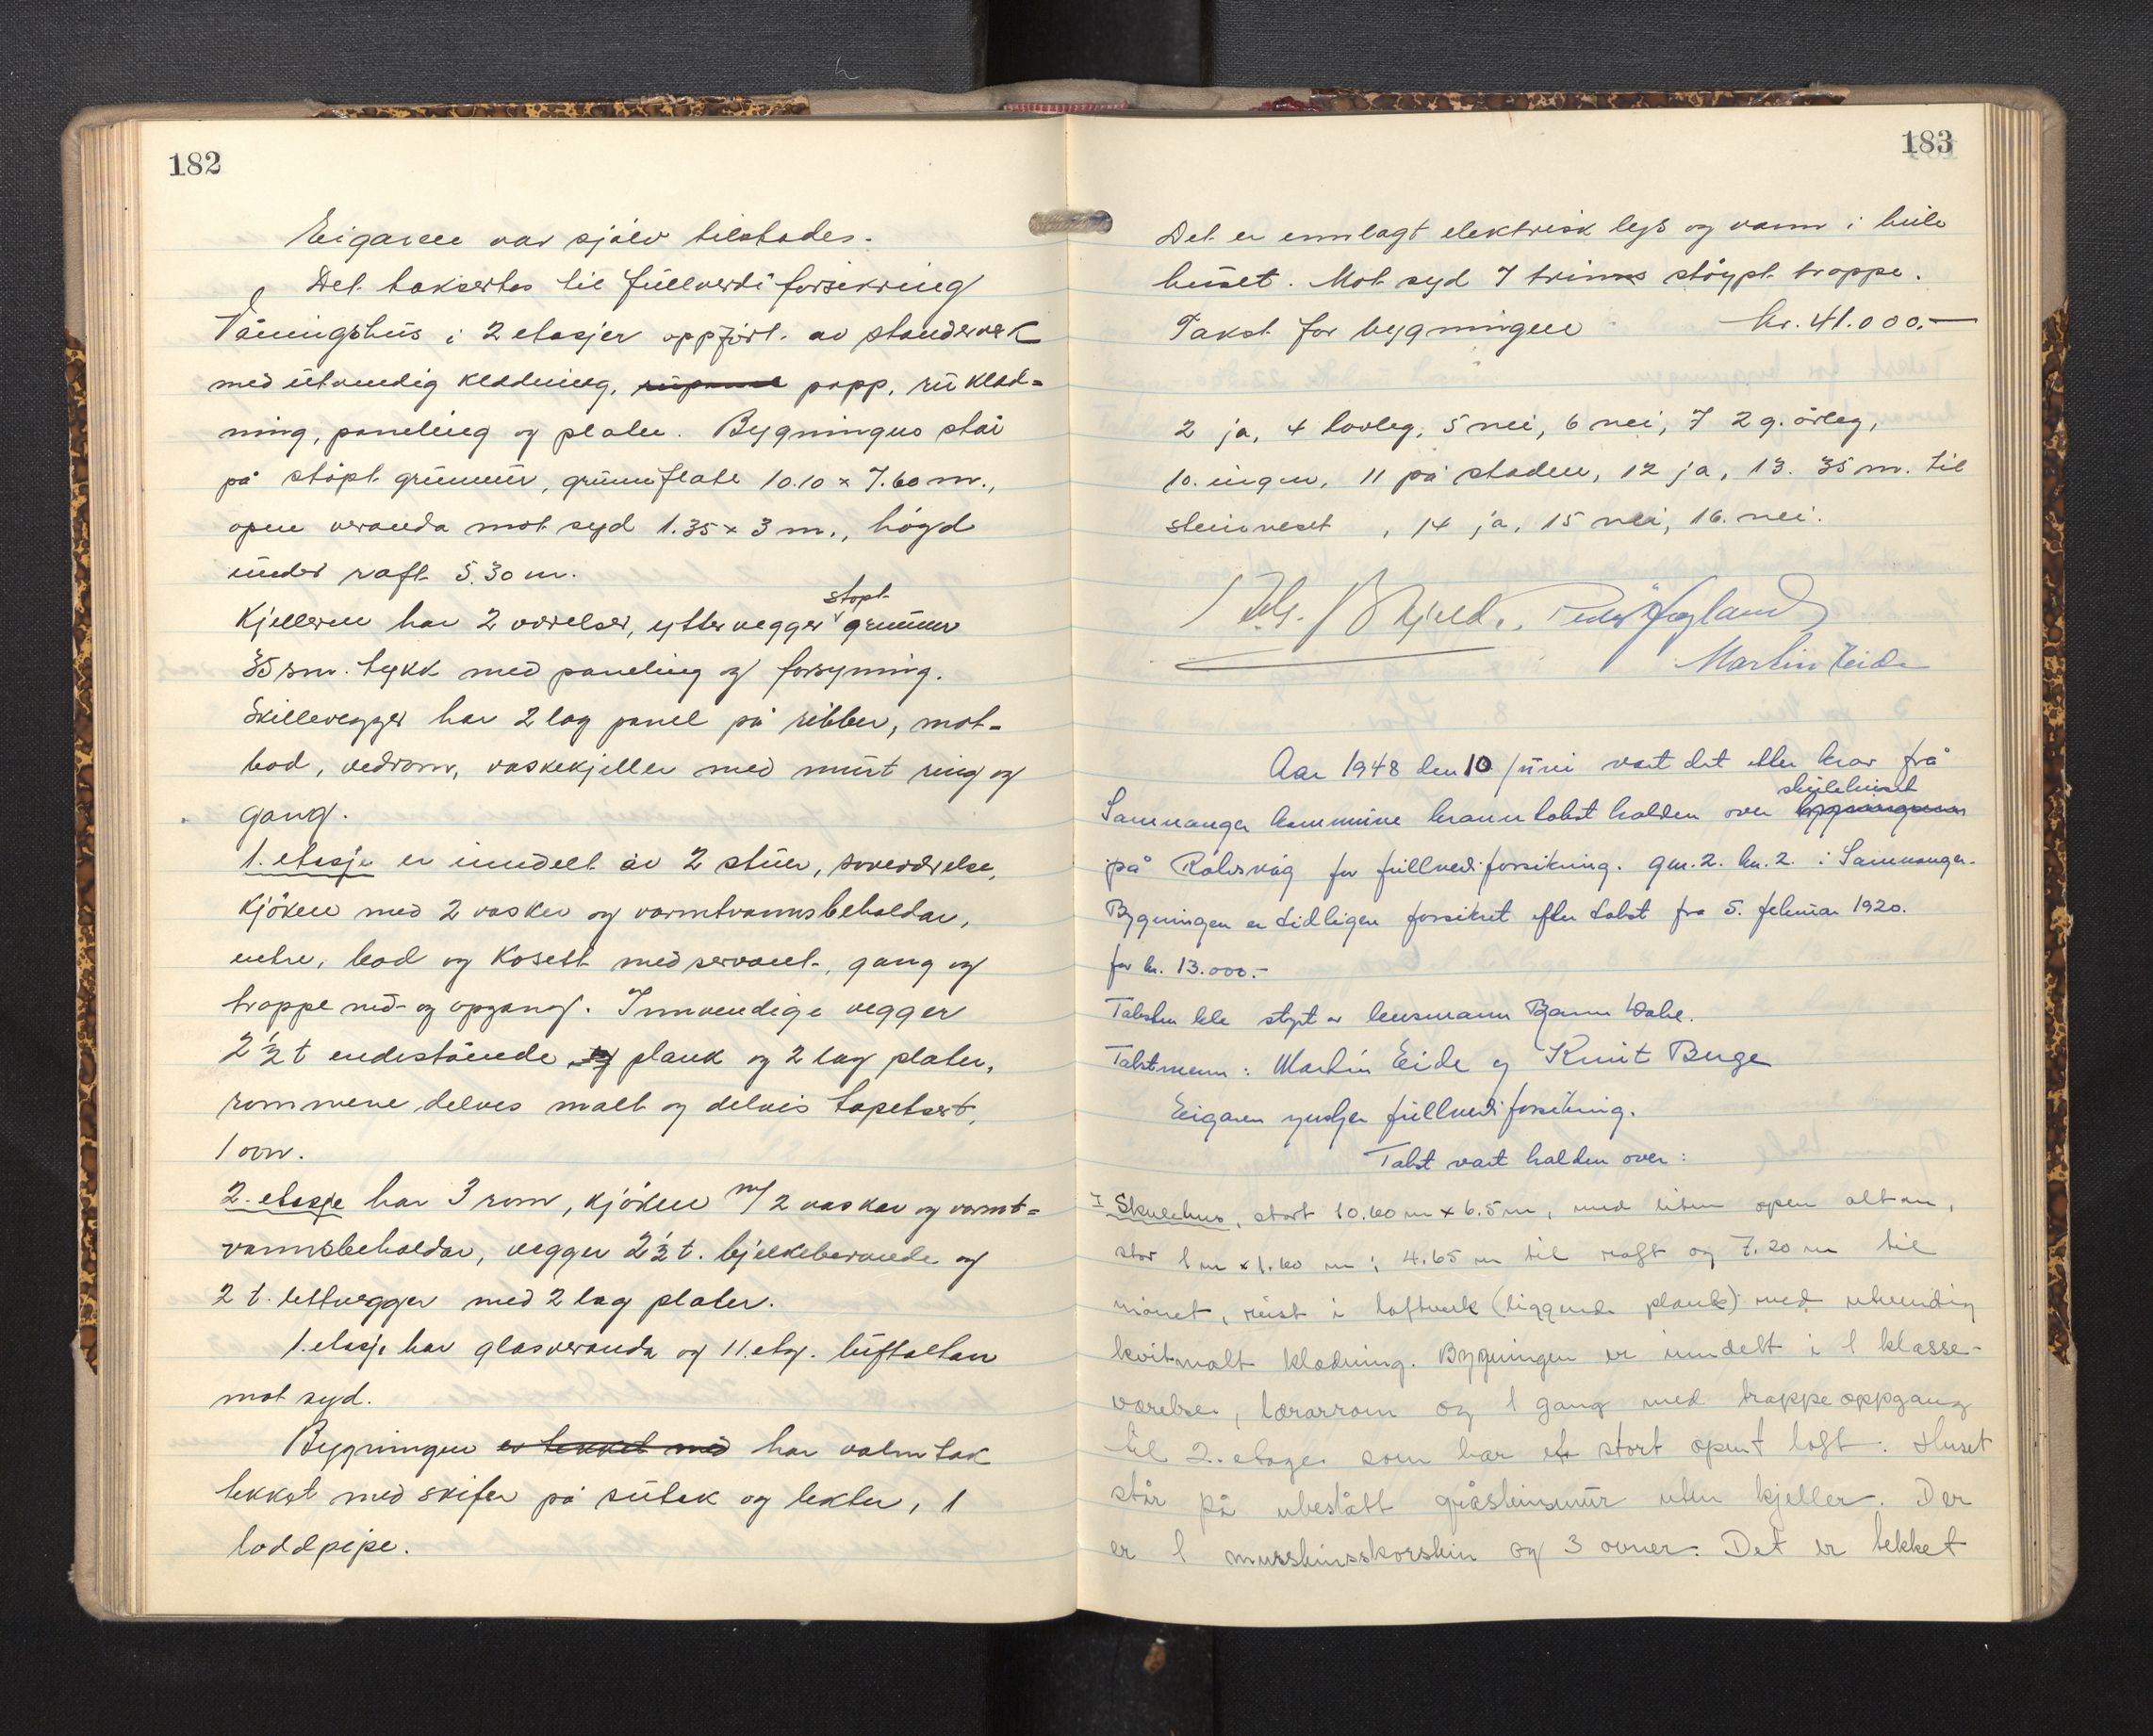 182
Eigaren var sjølv tilstades.
Det taksertes til fullverdi forsikring
Våningshus i 2 etasjer oppført av standerverk
med utvendig kledning, rupanel papp, rukled=
ning, paneling og plater. Bygningen står
på støpt grunmur, grunnflate 10.10 x 7.60 m.,
open veranda mot syd 1.35 x 3 m., høgd
under raft 5.30 m.
Kjelleren har 2 værelser, yttervegger støpt grunmur
35 sm. tykk med paneling og forsyning.
Skillevegger har 2 lag panel på ribber, mat-
bod, vedrom, vaskekjeller med murt ring og
gang.
1. etasje er inndelt av 2 stuer, soveværelse,
kjøken med 2 vasker og varmtvannsbeholdar,
entre, bod og Kosett med servant, gang og
trappe ned- og opgang. Innvendige vegger
2½ t endestående og plank og 2 lag plater,
rommene delves malt og delvis tapetsert,
1 ovn.
2. etasje har 3 rom, kjøken m/ 2 vasker og varmt=
vannsbeholdar, vegger 2½ t. bjelkeberande og
2 t. lettvegger med 2 lag plater.
1. etasje har glasveranda og II. etg. luftaltan
mot syd.
Bygningen er tekket med har valmtak
tekket med skifer på sutak og lekter, 1
loddpipe.
183
Det er innlagt elektrisk lys og vann i heile
huset. Mot syd 7 trinns støypt trappe.
Takst for bygningen kr. 41.000.-
2 ja, 4 lovleg, 5 nei, 6 nei, 7 2 g. årleg,
10. ingen, 11 på staden, 12 ja, 13. 35 m. til
, 14 ja, 15 nei, 16. nei.
Martin Eide
Aar 1948 den 10 juni vart det etter krav frå
skulehuset
Samnanger kommune branntakst halden over bygningene
på Rolvsvåg for fullverdiforsikring. gnr. 2. bnr. 2. i Samnanger.
Bygningen er tidligere forsikret efter takst fra 5. februar 1920.
for kr. 13.000.-
Taksten ble styrt av lensmann Bjarne
Takstmenn: Martin Eide og Knut Berge
Eigaren ynskjer fullverdiforsikring.
Takst vart halden over:
I Skulehus, stort 10.60 m x 6.5 m, med liten open altan,
stor 1 m x 1.60 m; 4.65 m til raft og 7.20 m til
mønet, reist i laftverk (liggende plank) med utvendig
kvitmalt kledning. Bygningen er inndelt i 1 klasse-
værelse, lærarrom og 1 gang med trappeoppgang
til 2. etage som har et stort opent loft. Huset
står på ubeslått gråsteinsmur uten kjeller. Der
er 1 mursteinsskorstein og 3 ovner. Det er tekket